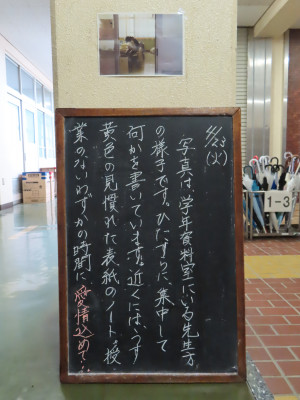 4/23
(火)
写真は、学年資料室にいる先生方
の様子です。ひたすらに、集中して
何かを書いています。近くには、うす
黄色の見慣れた表紙のノート。授
業のないわずかの時間に、愛情込めて…
1-3